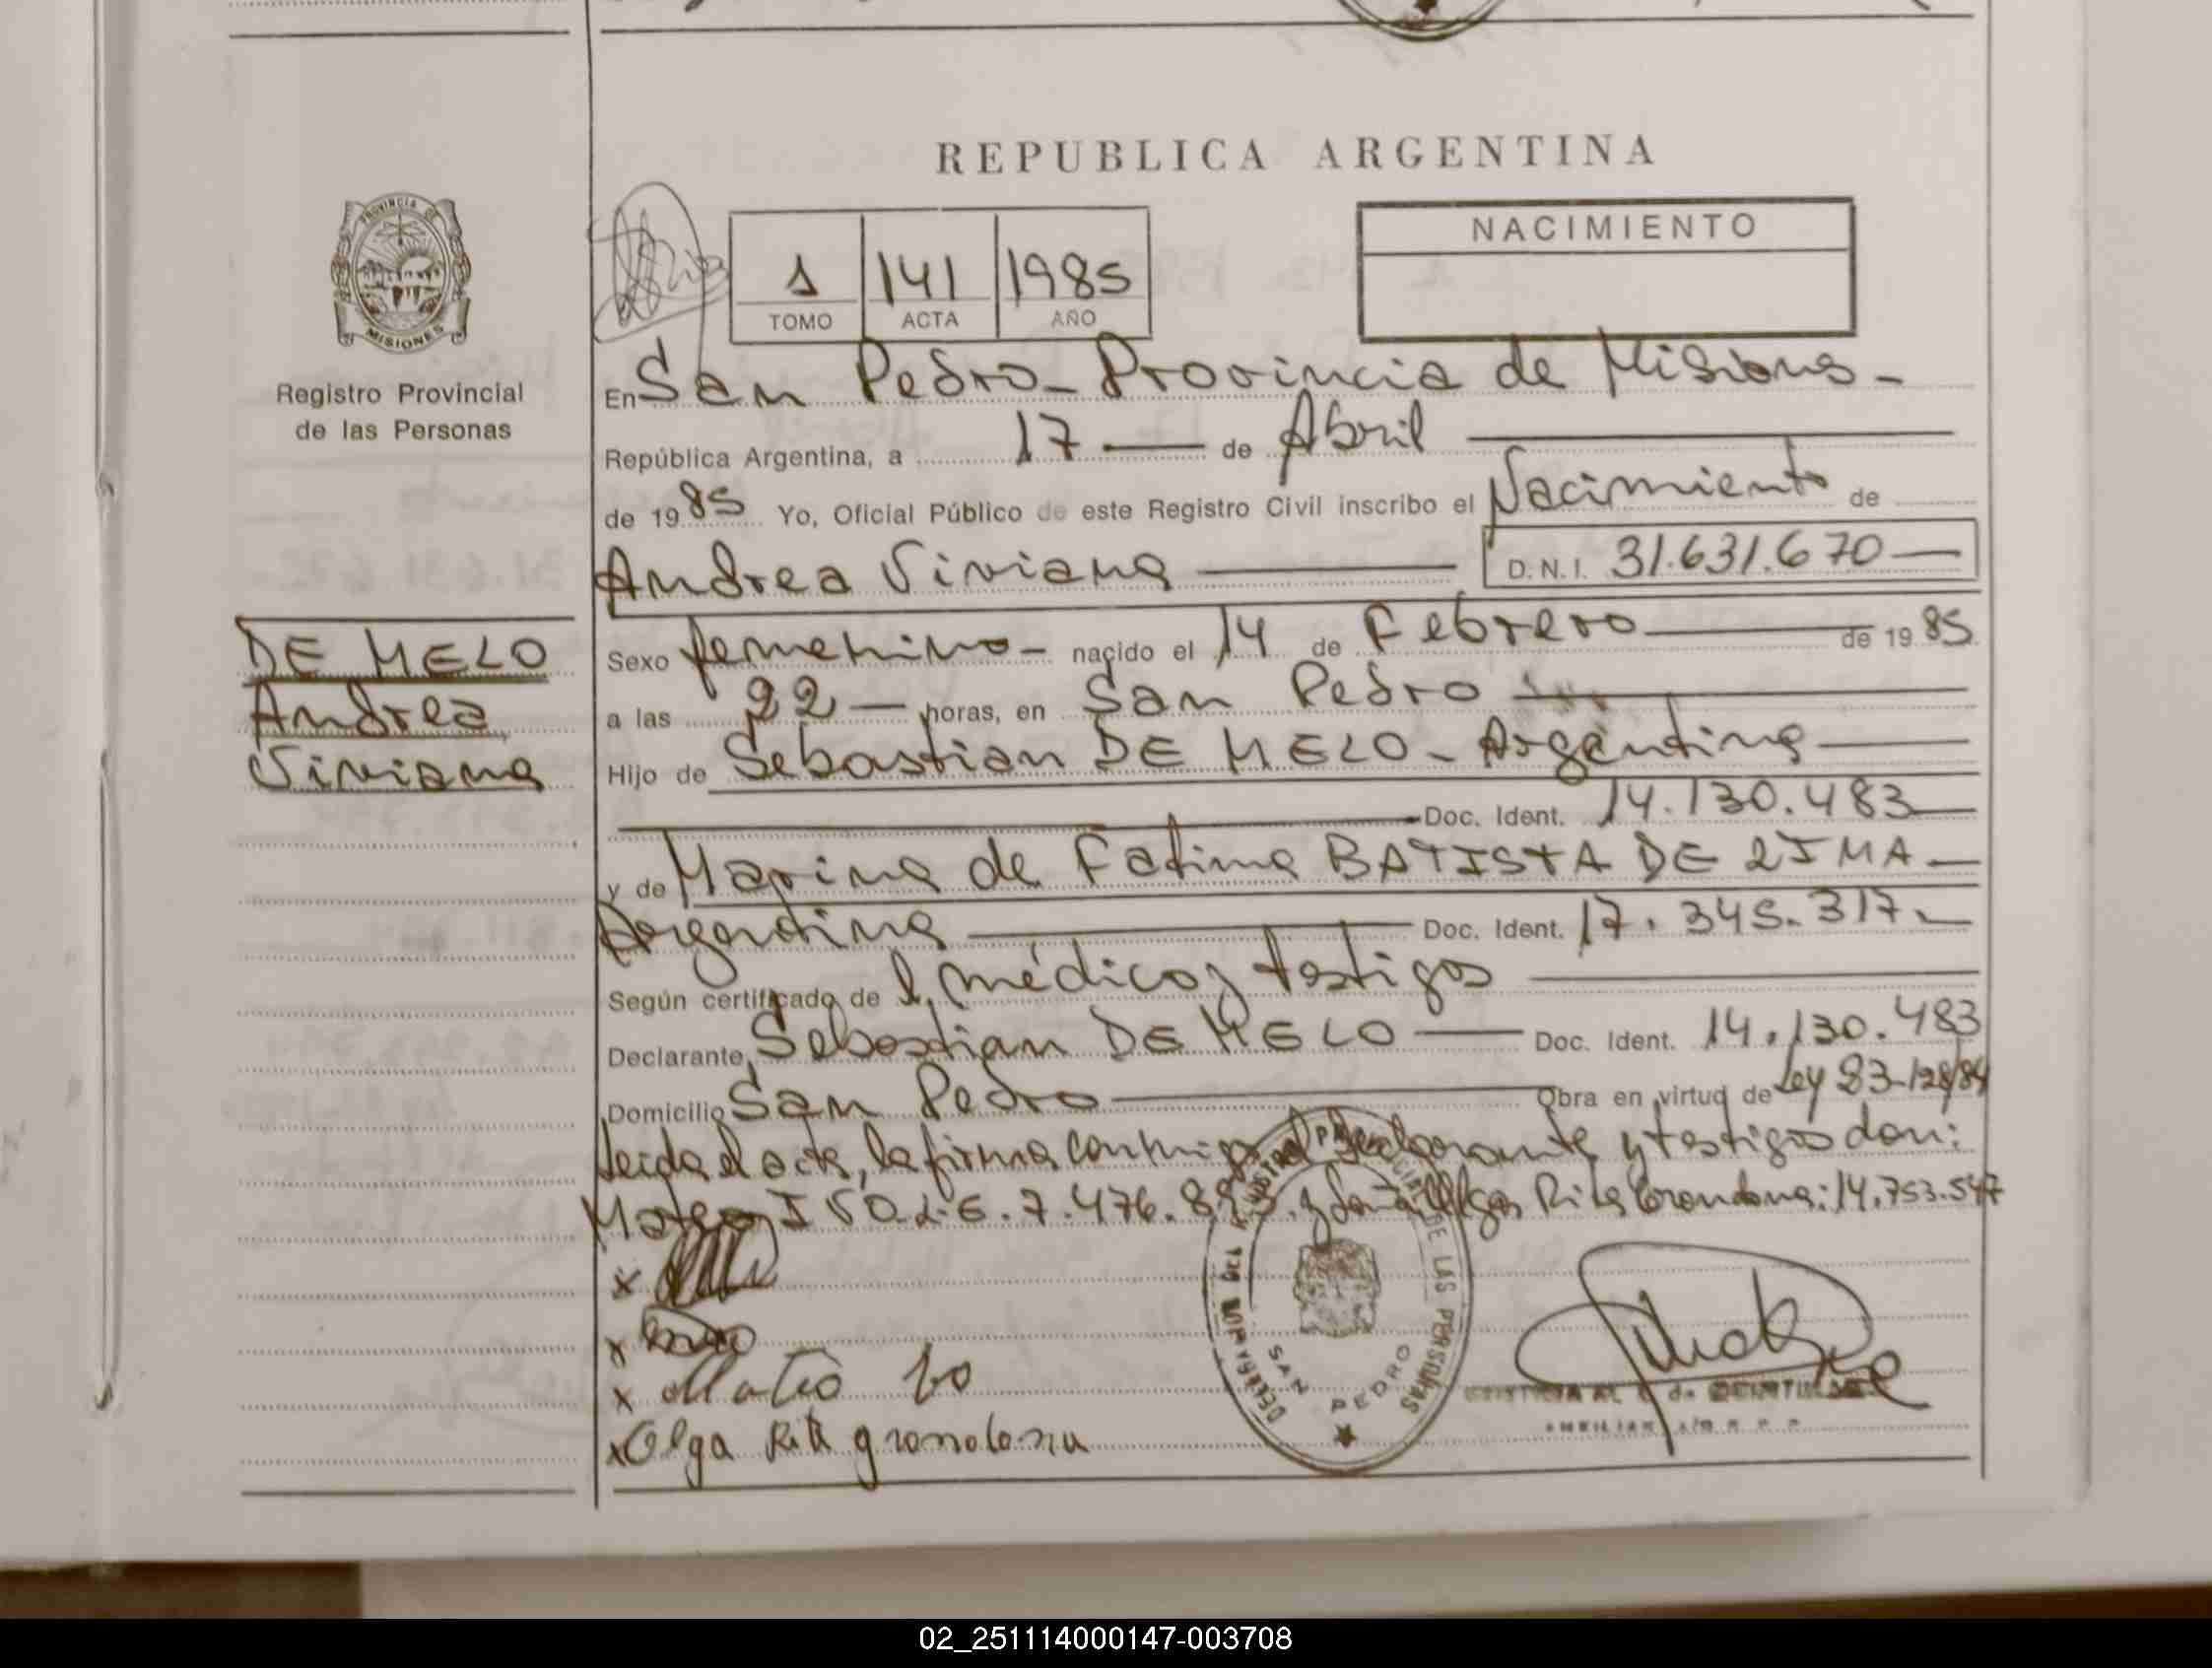 REPUBLICA ARGENTINA
PROVINCIA DE
MISIONES
Registro Provincial
de las Personas
1 141 1985
TOMO ACTA AÑO
NACIMIENTO
En San Pedro - Provincia de Misiones -
República Argentina, a 17 — de Abril
de 1985 Yo, Oficial Público de este Registro Civil inscribo el Nacimiento de
Andrea Viviana — D.N.I. 31.631.670 —
DE MELO
Andrea
Viviana
Sexo femenino - nacido el 14 de Febrero — de 1985
a las 22 — horas, en San Pedro —
Hijo de Sebastian DE MELO - Argentina —
Doc. Ident. 14.130.483 —
y de Marina de Fatima BATISTA DE LIMA —
Argentina — Doc. Ident. 17.345.317. —
Según certificado de l médico y testigos —
Declarante Sebastian DE MELO — Doc. Ident. 14.130.483
Domicilio San Pedro — Obra en virtud de Ley 83-128/84
leida el acta, la firma conmigo el declarante y testigos don:
Mateo ISO. L.E. 7.476. y doña Olga Rita Grondona: 14.753.547
x
x
x
x Olga Rita grondona
SAN PEDRO
DE LAS PERSONAS
02_251114000147-003708